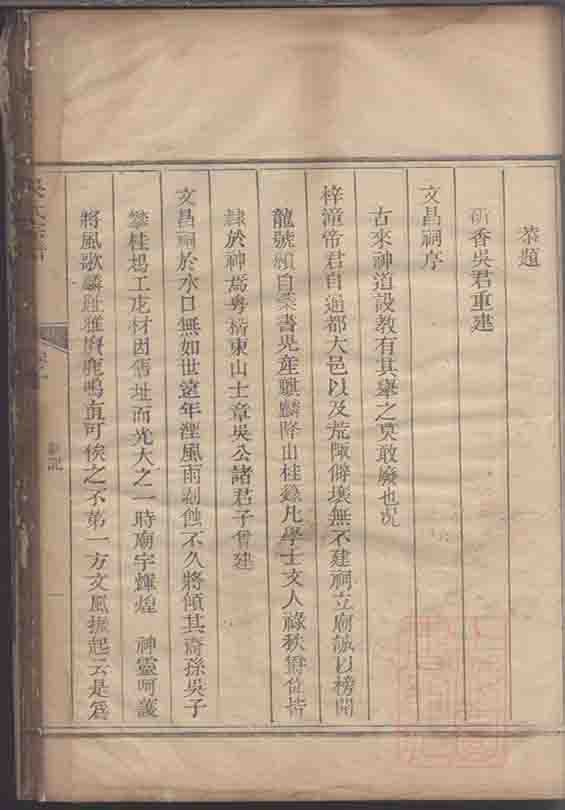 恭題
香吳君重建
文昌祠序
古來神道設教有其舉之莫敢廢也況
梓潼帝君自通都大邑以及荒陬僻壤無不建祠立廟誠以榜開
龍號籍自書兒産麒麟降山桂籙凡學士文人祿秩爵位皆
隸於神焉粵稽東山士章吳公諸君子曾建
文昌祠於水口無如世遠年湮風雨剝蝕不久將傾其裔孫吳子
攀桂鳩工庀材因舊址而光大之一時廟宇輝煌 神靈呵護
將風歌麟趾雅賡鹿鳴直可俟之不第一方文風振起云是爲
記
一